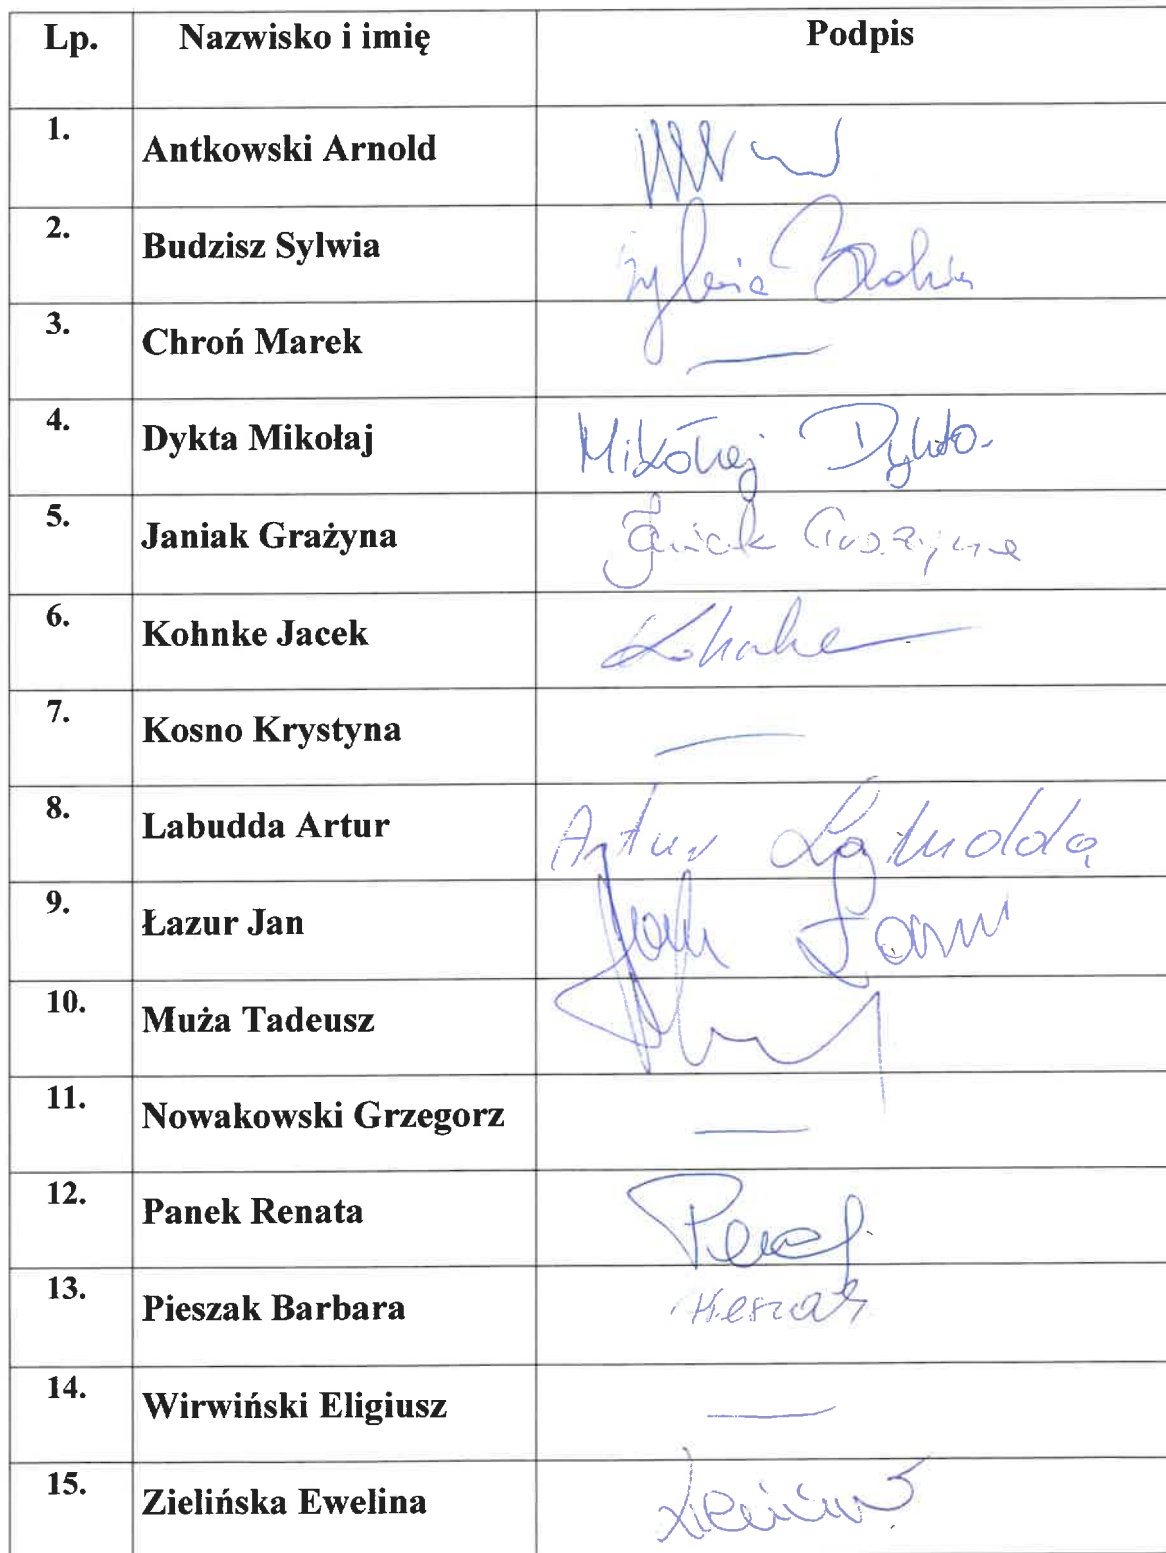 Lp. Nazwisko i imię Podpis
1. Antkowski Arnold
2. Budzisz Sylwia Sylwia
3. Chroń Marek —
4. Dykta Mikołaj Mikołaj Dykta
5. Janiak Grażyna Janiak Grażyna
6. Kohnke Jacek Kohnke
7. Kosno Krystyna —
8. Labudda Artur Artur Labudda
9. Łazur Jan Jan
10. Muża Tadeusz
11. Nowakowski Grzegorz —
12. Panek Renata
13. Pieszak Barbara Pieszak
14. Wirwiński Eligiusz —
15. Zielińska Ewelina